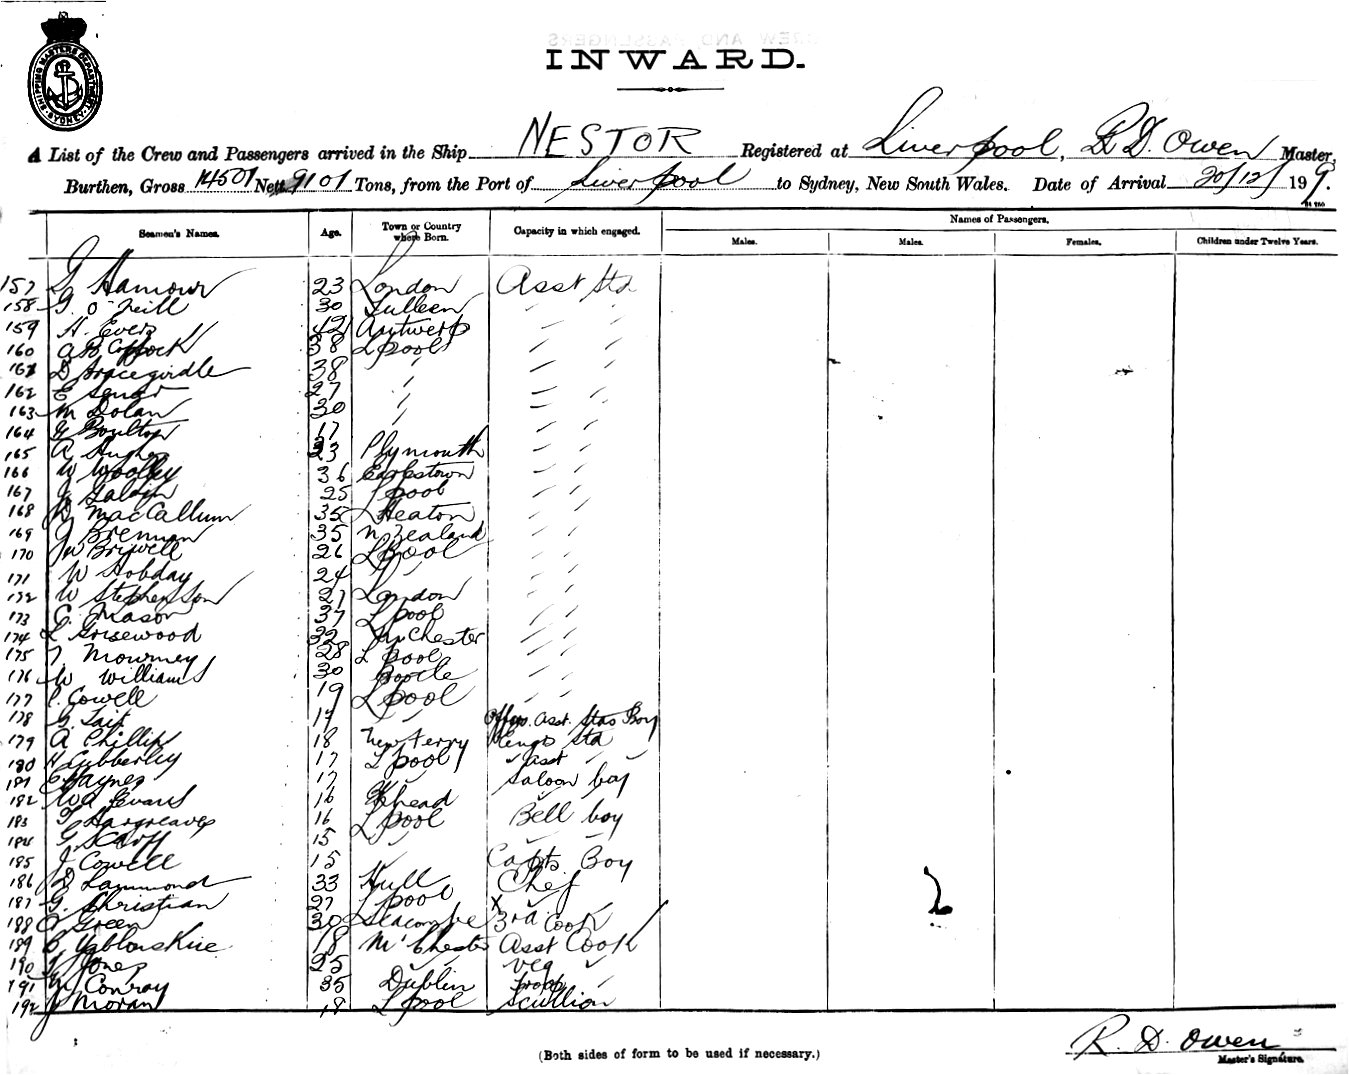 SHIPPING MASTERS DEPARTMENT SYDNEY
INWARD.
A List of the Crew and Passengers arrived in the Ship NESTOR Registered at Liverpool, R D. Owen Master,
Burthen, Gross 14501 Nett 9101 Tons, from the Port of Liverpool to Sydney, New South Wales. Date of Arrival 20/12/ 199.
Seamen's Names. Age. Town or Country where Born. Capacity in which engaged. Names of Passengers.
Males. Males. Females. Children under Twelve Years.
157 G Hamour 23 London Asst Std
158 G. O'Neill 30 " "
159 H. Evers 42 Antwerp " "
160 A B Coppock 38 L pool " "
161 D Bracegirdle 38 " " "
162 E Senar 27 " " "
163 M Dolan 30 " " "
164 G Boulton 17 " " "
165 A Hughes 23 Plymouth " "
166 W Woolley 36 Earlestown " "
167 25 L pool " "
168 D MacCallum 35 Heaton " "
169 J Brennan 35 N Zealand " "
170 JW Bridwell 26 L Pool " "
171 W Hobday 24 " " "
172 W Stephenson 27 London " "
173 C. Mason 37 L pool " "
174 L Grisewood 32 M'Chester " "
175 T Mourney 28 L pool " "
176 W Williams 30 Bootle " "
177 P. Cowell 19 L pool " "
178 G. Tait 17 " Offrs. Asst. Stds Boy
179 A Phillip 18 New Ferry Std
180 H Cubberley 17 L pool " Asst " "
181 C Haynes 17 " Saloon boy
182 WA Evans 16 B'head "
183 T Hargreaves 16 L pool Bell boy
184 G Scarff 15 " " "
185 J Cowell 15 " Capts Boy
186 D Lammond 33 Hull Chef
187 G. Christian 27 L pool X "
188 A Green 30 Seacombe 3rd Cook
189 C Yablonskie 18 M'Chester Asst Cook
190 T Jones 25 " " Veg "
191 M Conroy 35 Dublin Troop "
192 J Moran 18 L pool Scullion
(Both sides of form to be used if necessary.)
R. D. Owen
Master's Signature.